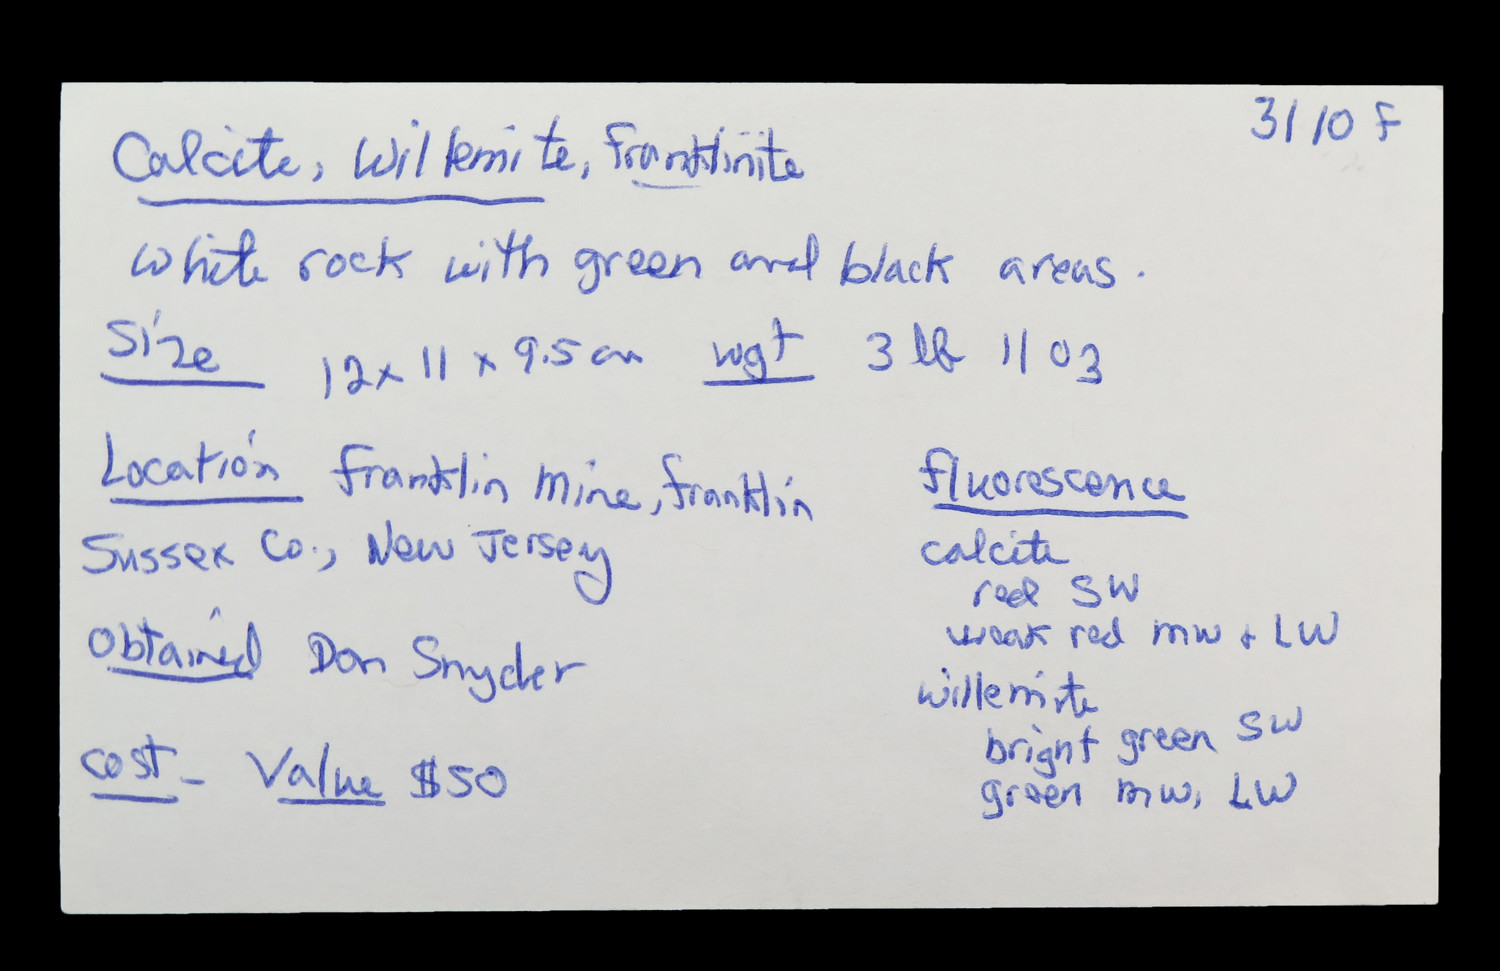 3110 F
Calcite, Willemite, Franklinite
White rock with green and black areas.
Size 12 x 11 x 9.5 cm wgt 3 lb 11 oz
Location Franklin Mine, Franklin
Sussex Co., New Jersey
Obtained Don Snyder
Cost - Value $50
Fluorescence
calcite
red SW
weak red MW + LW
willemite
bright green SW
green MW, LW